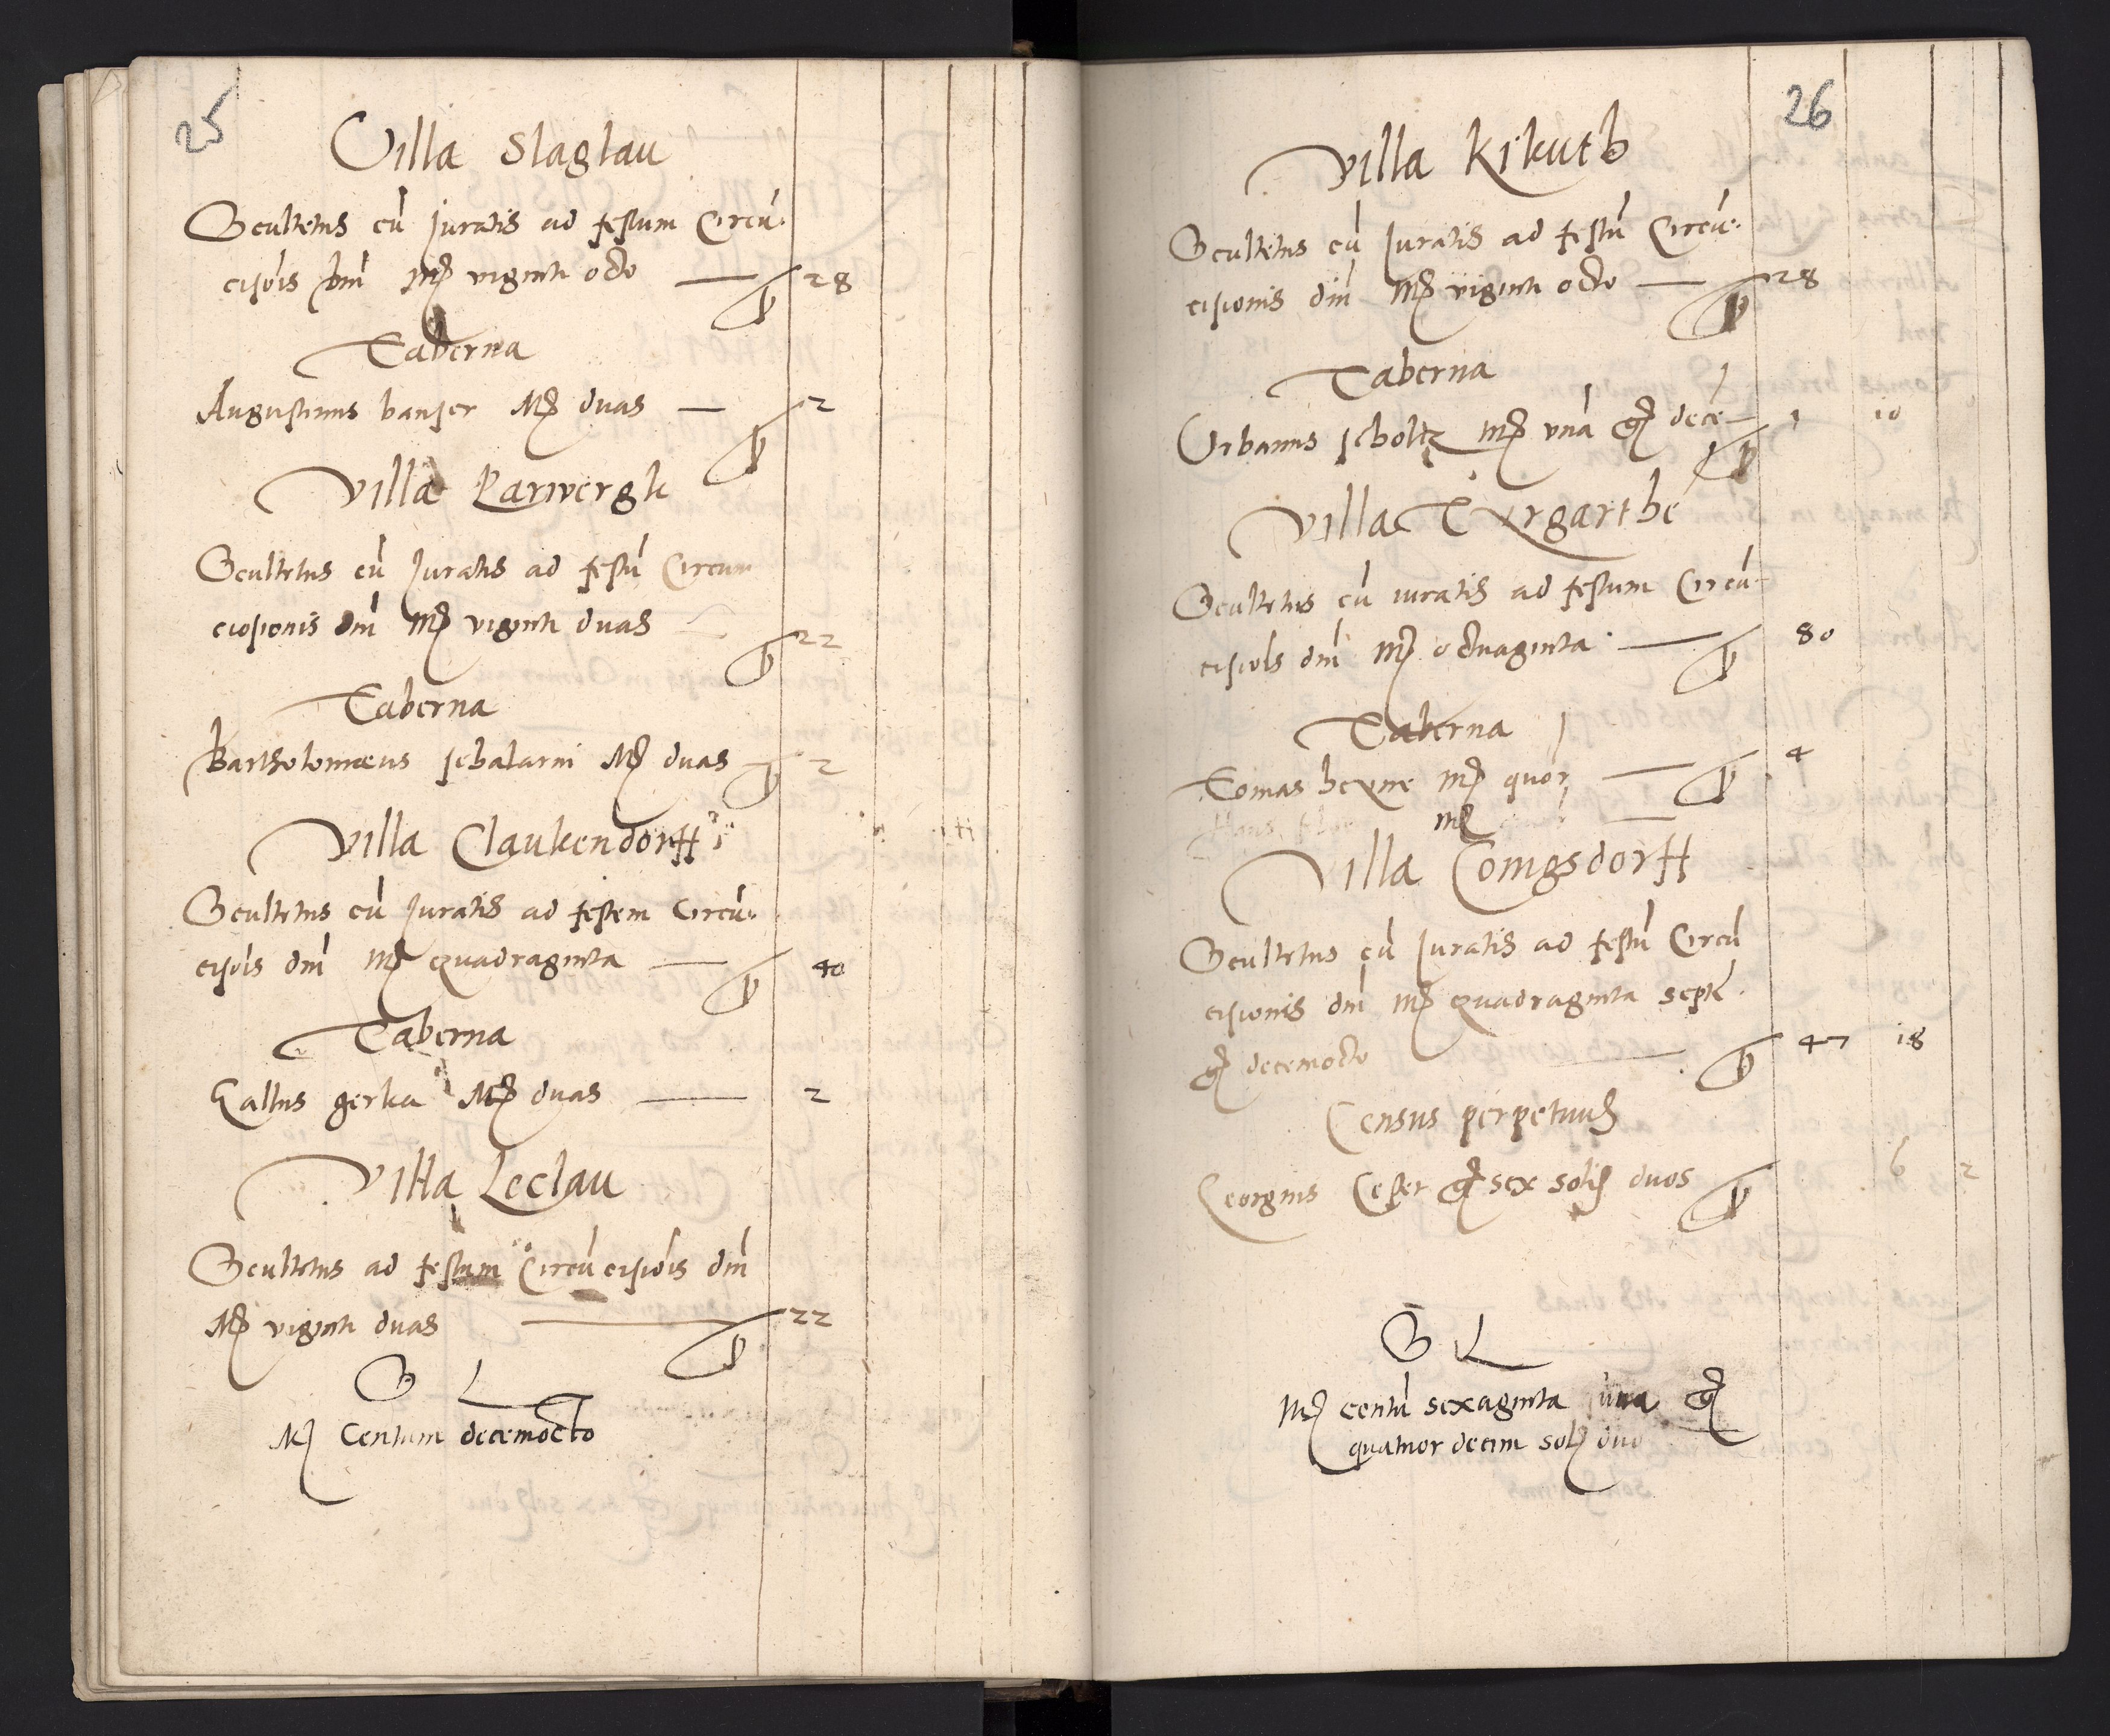 25
Villa Slaglau
Scultetus cū Juratis ad festum Circū-
cisiōis dm̄ Mr̄ viginti octo — 28
Taberna
Augustinus banser Mr̄ duas — 2
Villa Parwergk
Scultetus cū Juratis ad festū Circum
ciosionis dm̄ Mr̄ viginti duas 22
Taberna
Bartholomæus schalarni Mr̄ duas — 2
Villa Claukendorff
Scultetus cū Juratis ad festem Circū-
cisiōis dm̄ Mr̄ Quadraginta — 40
Taberna
Gallus gerka Mr̄ duas — 2
Villa Leclau
Scultetus ad festum Circūcisiōis dm̄
Mr̄ viginti duas — 22
S L
Mr̄ Centum decemocto
26
Villa Kikuth
Scultetus cū Juratis ad festū Circū-
cisionis dm̄ Mr̄ viginti octo — 28
Taberna
Urbanus scholtz Mr̄ vnā gr̄ decē — 1 10
Villa Tyrgarthē
Scultetus cū iuratis ad festum Circū-
cisiōis dm̄ Mr̄ octuaginta — 80
Taberna
Tomas heyne Mr̄ quor — 4
Hans Mr̄
Villa Comgsdorff
Scultetus cū Juratis ad festū Circū
cisionis dm̄ Mr̄ Quadraginta septē
gr̄ decemocto — 47 18
Census perpetuus
Georgius Ceper gr̄ sex solid duos 6 2
S L
Mr̄ centū sexaginta una gr̄
quatuor decim sol duo